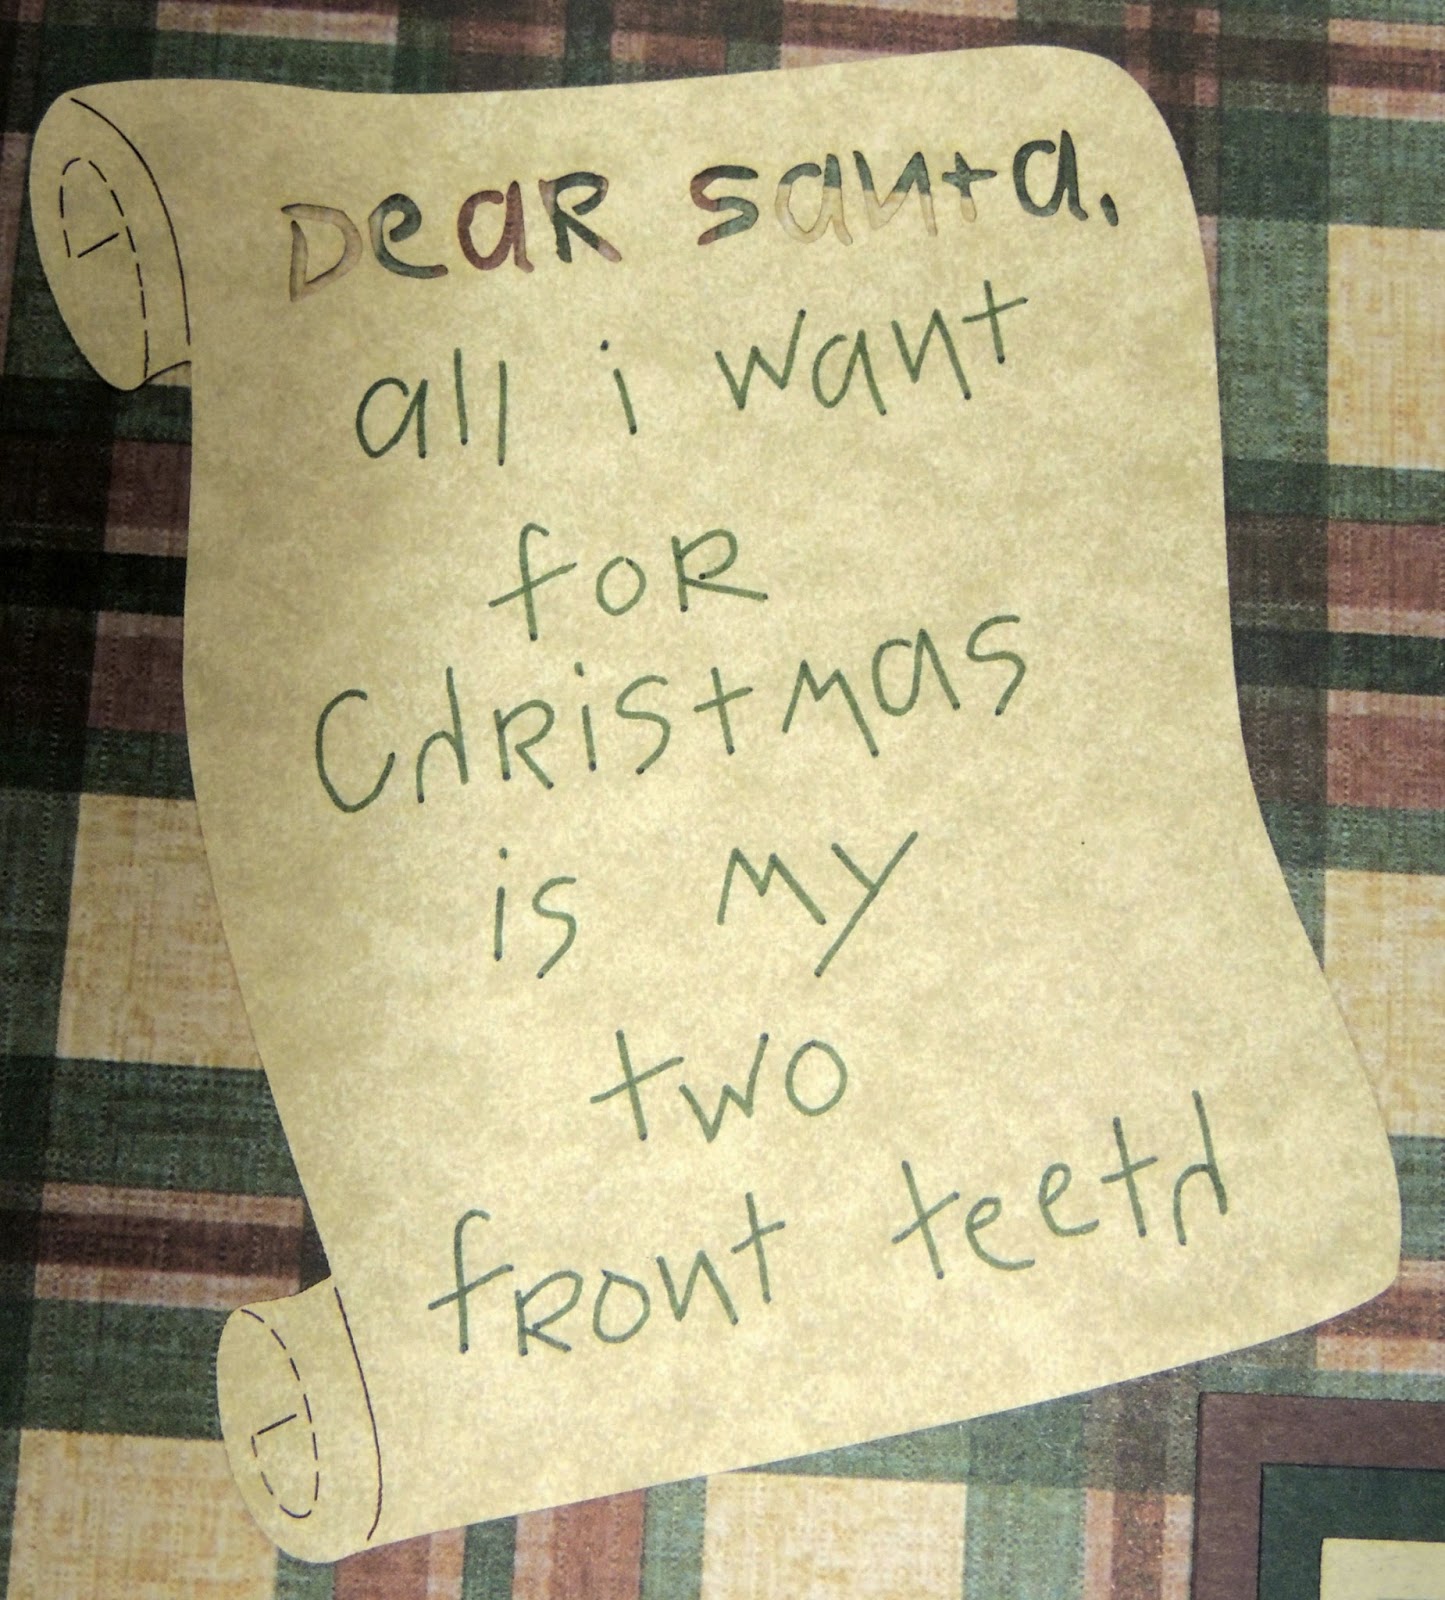 Dear santa,
all i want
for
Christmas
is my
two
front teeth